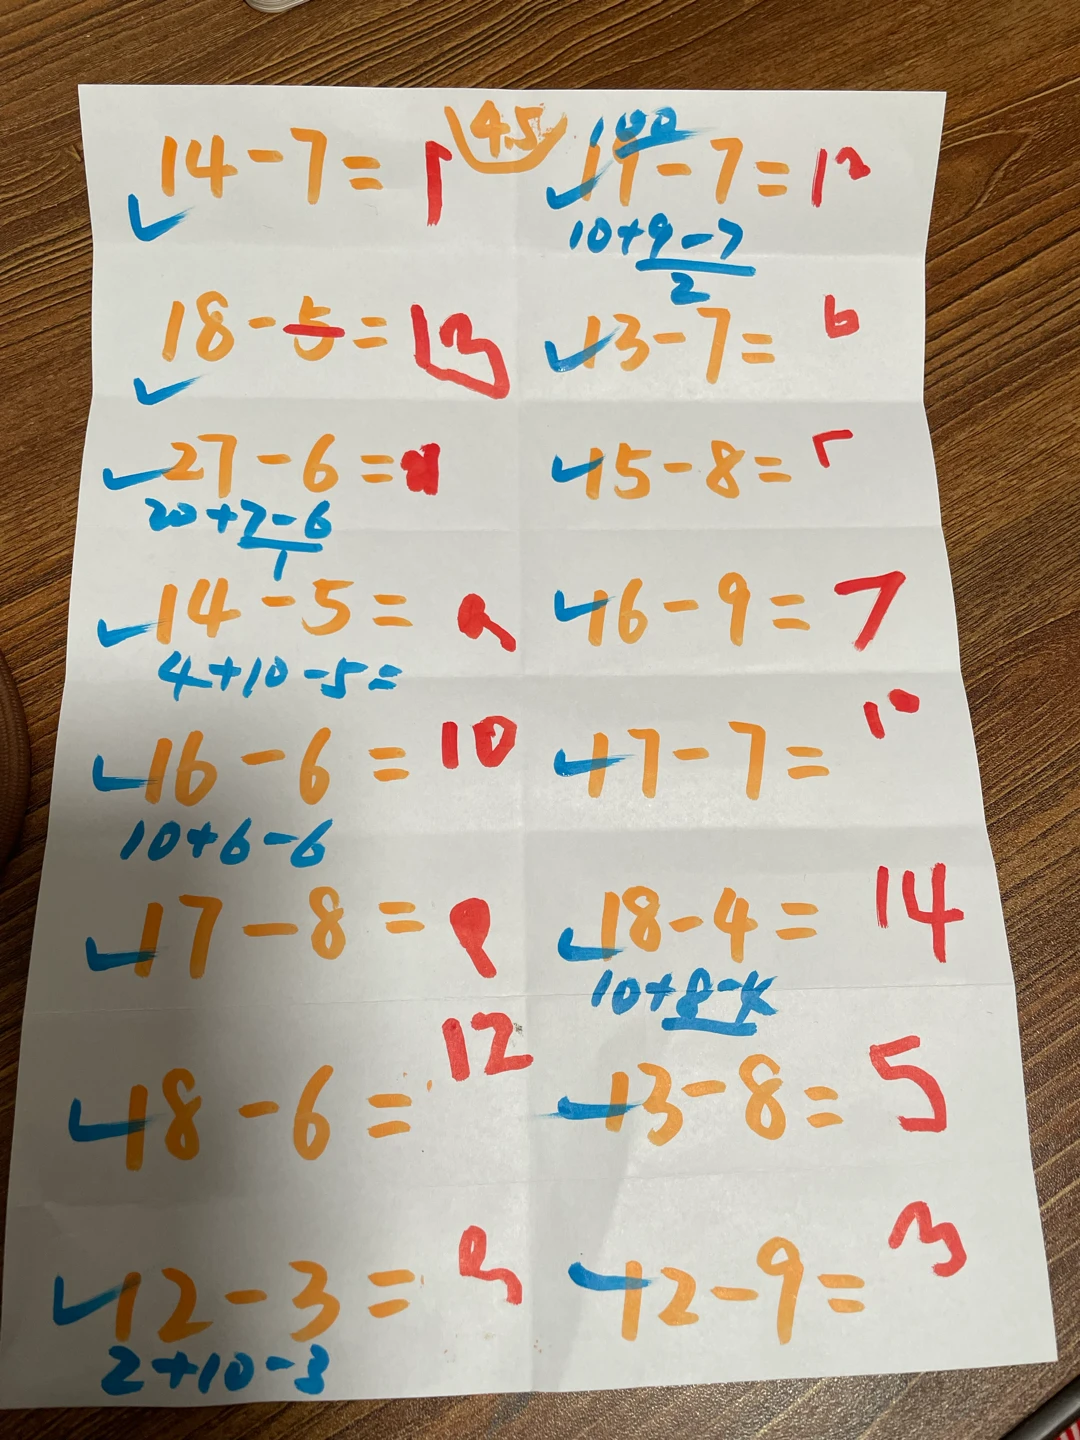 45 100
14-7=7 19-7=12
10+9-7
2
18-5=13 13-7= 6
27-6=21 15-8=7
20+7-6
1
14-5=9 16-9=7
4+10-5=
16-6=10 17-7=10
10+6-6
17-8=9 18-4=14
10+8-4
18-6=12 13-8=5
12-3=9 12-9=3
2+10-3